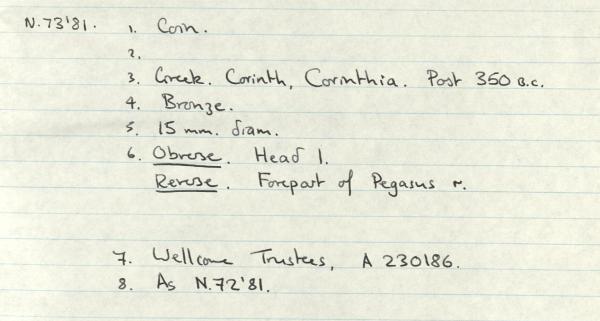 N.73'81. 1. Coin.
2.
3. Greek. Corinth, Corinthia. Post 350 B.C.
4. Bronze.
5. 15 mm. diam.
6. Obverse. Head l.
Reverse. Forepart of Pegasus r.
7. Wellcome Trustees, A 230186.
8. As N.72'81.